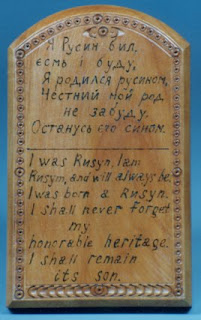 Я Русин бил,
єсмь і буду,
Я родился русином,
Честный мой род
не забуду.
Останусь его сином.
I was Rusyn, I am
Rusyn, and will always be.
I was born a Rusyn.
I shall never forget
my
honorable heritage.
I shall remain
its son.